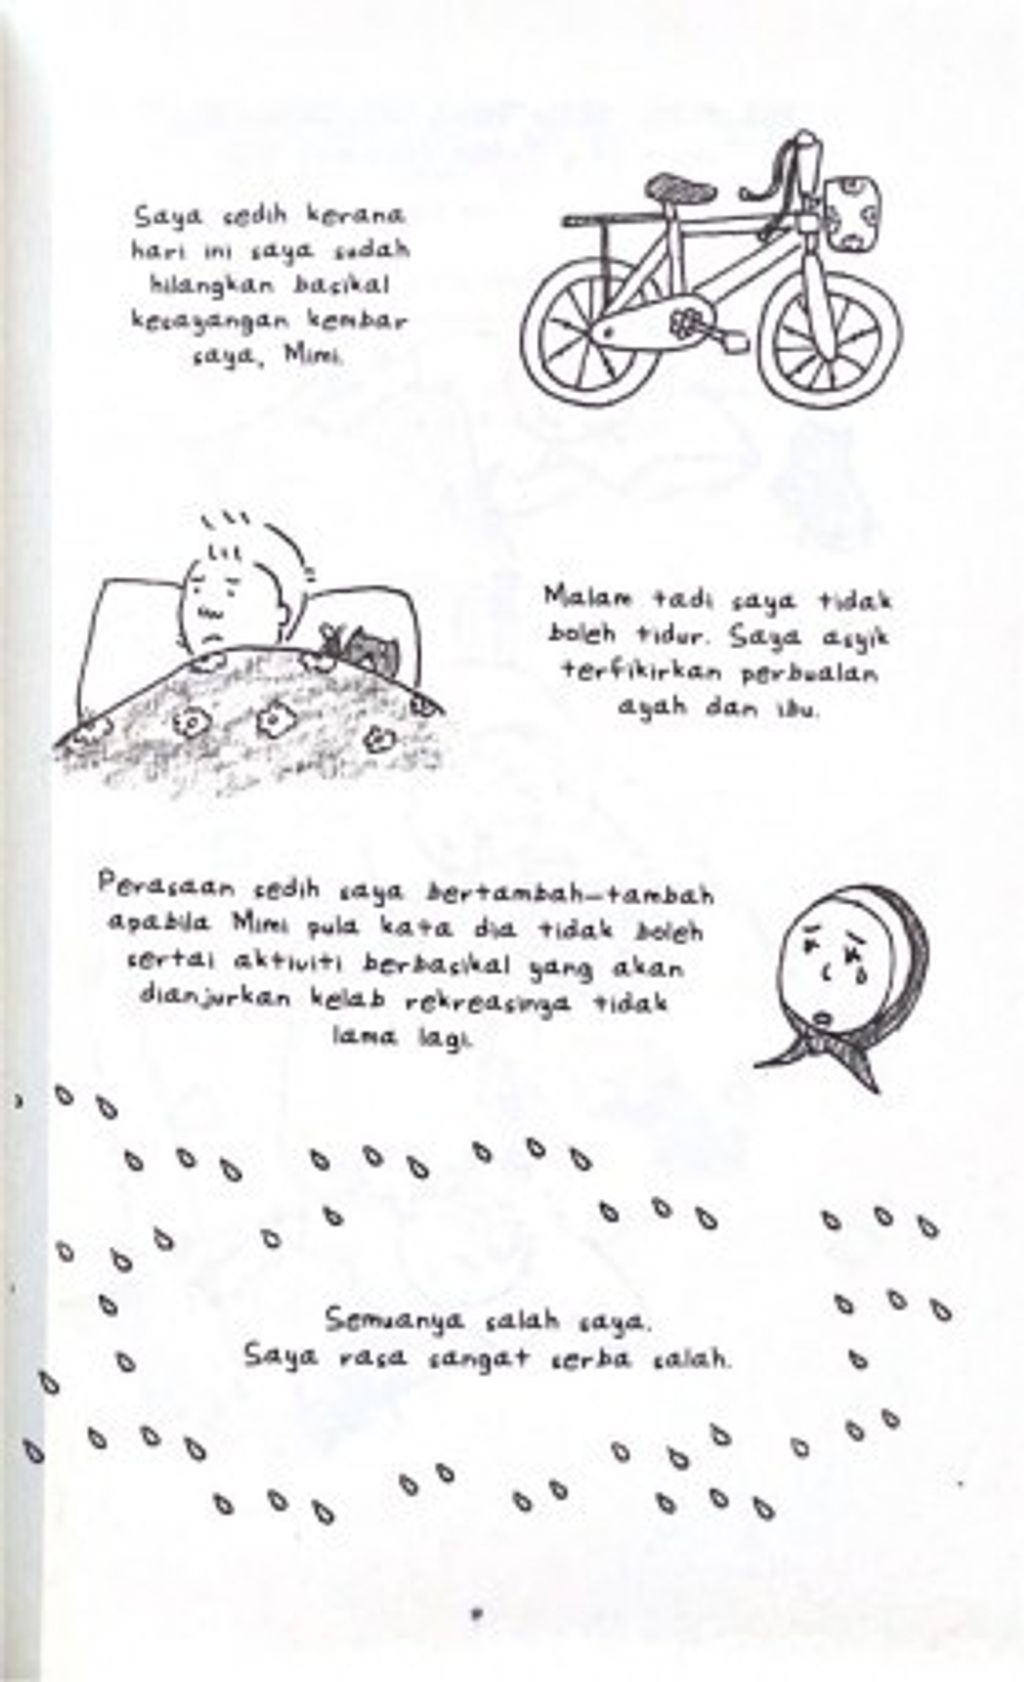 Saya sedih kerana
hari ini saya sudah
hilangkan basikal
kesayangan kembar
saya, Mimi.
Malam tadi saya tidak
boleh tidur. Saya asyik
terfikirkan perbualan
ayah dan ibu.
Perasaan sedih saya bertambah-tambah
apabila Mimi pula kata dia tidak boleh
sertai aktiviti berbasikal yang akan
dianjurkan kelab rekreasinya tidak
lama lagi.
Semuanya salah saya.
Saya rasa sangat serba salah.